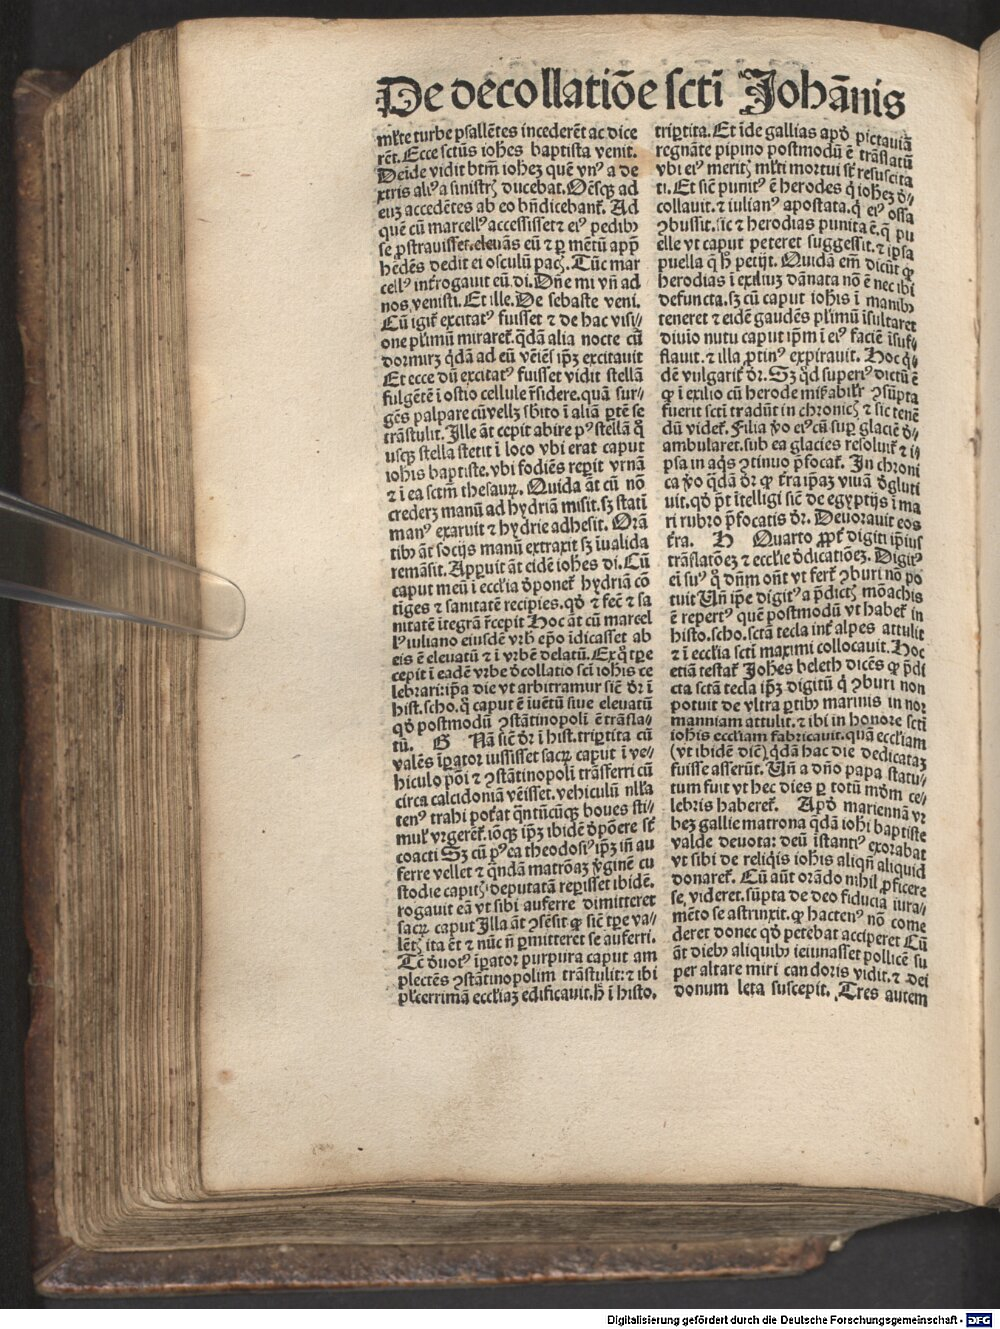 De decollatiõe scti Johãnis
ml̃te turbe psallẽtes incederẽt ac dice
rẽt. Ecce sctũs iohẽs baptista venit.
Deide vidit btm̃ iohez quẽ vn⁹ a de
xtris ali⁹ a sinistrꝭ ducebat. Oẽsqꝫ ad
euꝫ accedẽtes ab eo bñdicebanť. Ad
quẽ cũ marcell⁹ accessisset ⁊ ei⁹ pedibꝫ
se ꝓstravisset. elevãs eũ ⁊ ꝑ mẽtũ app̃
hẽdẽs dedit ei osculũ pacꝭ. Tũc mar
cell⁹ int̃rogavit eũ. di. Dñe mi vñ ad
nos venisti. Et ille. De sebaste veni.
Cũ igiť excitat⁹ fuisset ⁊ de hac visi⸗
one plimũ mirareť. q̃dã alia nocte cũ
dormirꝫ q̃dã ad eũ vẽiẽs ip̃ꝫ excitavit
Et ecce dũ excitat⁹ fuisset vidit stellã
fulgẽtẽ ĩ ostio cellule r̃sidere. quã sur⸗
gẽs palpare cũ vellꝫ sb̃ito ĩ aliã ꝑtẽ se
trãstulit. Ille ãt cepit abire p⁹ stellã q̃
usqꝫ stella stetit ĩ loco vbi erat caput
iohis baptiste. vbi fodiẽs reꝑit vrnã
⁊ ĩ ea sctm̃ thesauꝝ. Quida ãt cũ nõ
crederꝫ manũ ad hydriã misit. sꝫ statĩ
man⁹ exaruit ⁊ hydrie adhesit. Orã
tibꝫ ãt socijs manũ extraxit sꝫ ĩvalida
remãsit. Apꝑuit ãt eidẽ iohẽs di. Cũ
caput meũ ĩ eccl̃ia d̾poneť hydriã cõ
tiges ⁊ sanitatẽ recipies. qd̾ ⁊ fec̃ ⁊ sa
nitatẽ ĩtegrã r̃cepit Hoc ãt cũ marcel
l⁹ iuliano eiusdẽ vrb̃ ep̃o ĩdicasset ab
eis ẽ elevatũ ⁊ ĩ vrbẽ delatũ. Ex q̃ tꝑe
cepit ĩ eadẽ vrbe d̾collatio scti iohis ce
lebrari: ip̃a die vt arbitramur sic̃ d̾r ĩ
hist. scho. q̃ caput ẽ ĩuẽtũ siue elevatũ
qd̾ postmodũ ꝯstãtinopolĩ ẽ trãsla⸗
tũ. G Nã sic̃ d̾r ĩ hist. triꝑtita cũ
valẽs ĩꝑator iussisset sacꝝ caput ĩ ve⸗
hiculo põi ⁊ ꝯstãtinopolĩ trãsferri cũ
circa calcidoniã vẽisset. vehiculũ nll̃a
ten⁹ trahi poťat q̃ntũcũqꝫ boves sti⸗
mul̃ vrgerẽť. iõqꝫ ip̃ꝫ ibidẽ d̾põere st̃
coacti Sꝫ cũ p⁹ea theodosi⁹ ip̃ꝫ ĩñ au
ferre vellet ⁊ q̃ndã matrõaꝫ v̾ginẽ cu
stodie capitꝭ deputatã reꝑisset ibidẽ.
rogavit eã vt sibi auferre dimitteret
sacꝝ caput Illa ãt ꝯsẽsit ꝙ sic̃ tꝑe va⸗
lẽtꝭ ita ẽt ⁊ nũc ñ ꝑmitteret se auferri.
Tc̃ d̾vot⁹ ĩꝑator purpura caput am
plectẽs ꝯstãtinopolim trãstulit: ⁊ ibi
pl̃cerrimã eccl̃iaꝫ edificavit. h̃ ĩ histo.
triꝑtita. Et ĩde gallias apd̾ pictauiã
regnãte pipino postmodũ ẽ trãslatũ
vbi ei⁹ meritꝭ ml̃ti mortui st̃ resuscita
ti. Et sic̃ punit⁹ ẽ herodes q̃ iohez d̾⸗
collavit. ⁊ iulian⁹ apostata. q̃ ei⁹ ossa
ꝯbussit. sic ⁊ herodias punita ẽ. q̃ pu
elle vt caput peteret suggessit. ⁊ ip̃sa
puella q̃ h̃ petijt. Quidã em̃ dicũt ꝙ
herodias ĩ exiliuꝫ dãnata nõ ẽ nec ibi
defuncta. sꝫ cũ caput iohis ĩ manibꝫ
teneret ⁊ eidẽ gaudẽs plimũ ĩsultaret
diuio nutu caput ip̃m ĩ ei⁹ faciẽ ĩsuf⸗
flauit. ⁊ illa ꝓtin⁹ expirauit. Hoc q̃⸗
dẽ vulgariť d̾r. Sꝫ q̃d superi⁹ dictũ ẽ
ꝙ ĩ exilio cũ herode miẜabilr̃ ꝯsũpta
fuerit scti tradũt in chronicꝭ ⁊ sic tenẽ
dũ videť. Filia v̾o ei⁹ cũ suꝑ glaciẽ d̾⸗
ambularet. sub ea glacies resoluiť ⁊ i⸗
psa in aq̃s ꝯtinuo p̃focať. In chroni
ca v̾o q̃dã d̾r ꝙ ťra ip̃aꝫ viuã d̾gluti
uit. qd̾ p̃t ĩtelligi sic̃ de egyptijs ĩ ma
ri rubro p̃focatis d̾r. Deuorauit eos
ťra. H Quarto ꝓpť digiti ip̃ius
trãslatõeꝫ ⁊ eccl̃ie d̾dicatiõeꝫ. Digit⁹
eĩ su⁹ q̃ dñm oñt vt ferť ꝯburi nõ po
tuit Uñ ip̃e digit⁹ a p̃dictꝭ mõachis
ẽ repert⁹ quẽ postmodũ vt habeť in
histo. scho. sctã tecla inť alpes attulit
⁊ ĩ eccl̃ia scti maximi collocauit. Hoc
etiã testať Johẽs beleth dicẽs ꝙ p̃di
cta sctã tecla ip̃ꝫ digitũ q̃ ꝯburi non
potuit de vltra ꝑtibꝫ marinis in nor
manniam attulit. ⁊ ibi in honore scti
iohis eccl̃iam fabricauit. quã eccl̃iam
(vt ibidẽ dic̃) q̃dã hac die dedicataꝫ
fuisse asserũt. Uñ a dño papa statu⸗
tum fuit vt hec dies ꝑ totũ mõm ce⸗
lebris habereť. Apd̾ mariennã vr
beꝫ gallie matrona q̃dã iohĩ baptiste
valde deuota: deũ ĩstanti⁹ exorabat
vt sibi de reliq̃is iohis aliqñ aliquid
donareť. Cũ aũt orãdo nihil ꝓficere
se videret. sũpta de deo fiducia iura⸗
mẽto se astrinxit. ꝙ hacten⁹ nõ come
deret donec qd̾ petebat acciperet Cũ
ãt diebꝫ aliquibꝫ ieiunasset pollicẽ su
per altare miri candoris vidit. ⁊ dei
donum leta suscepit. Tres autem
Digitalisierung gefördert durch die Deutsche Forschungsgemeinschaft - DFG